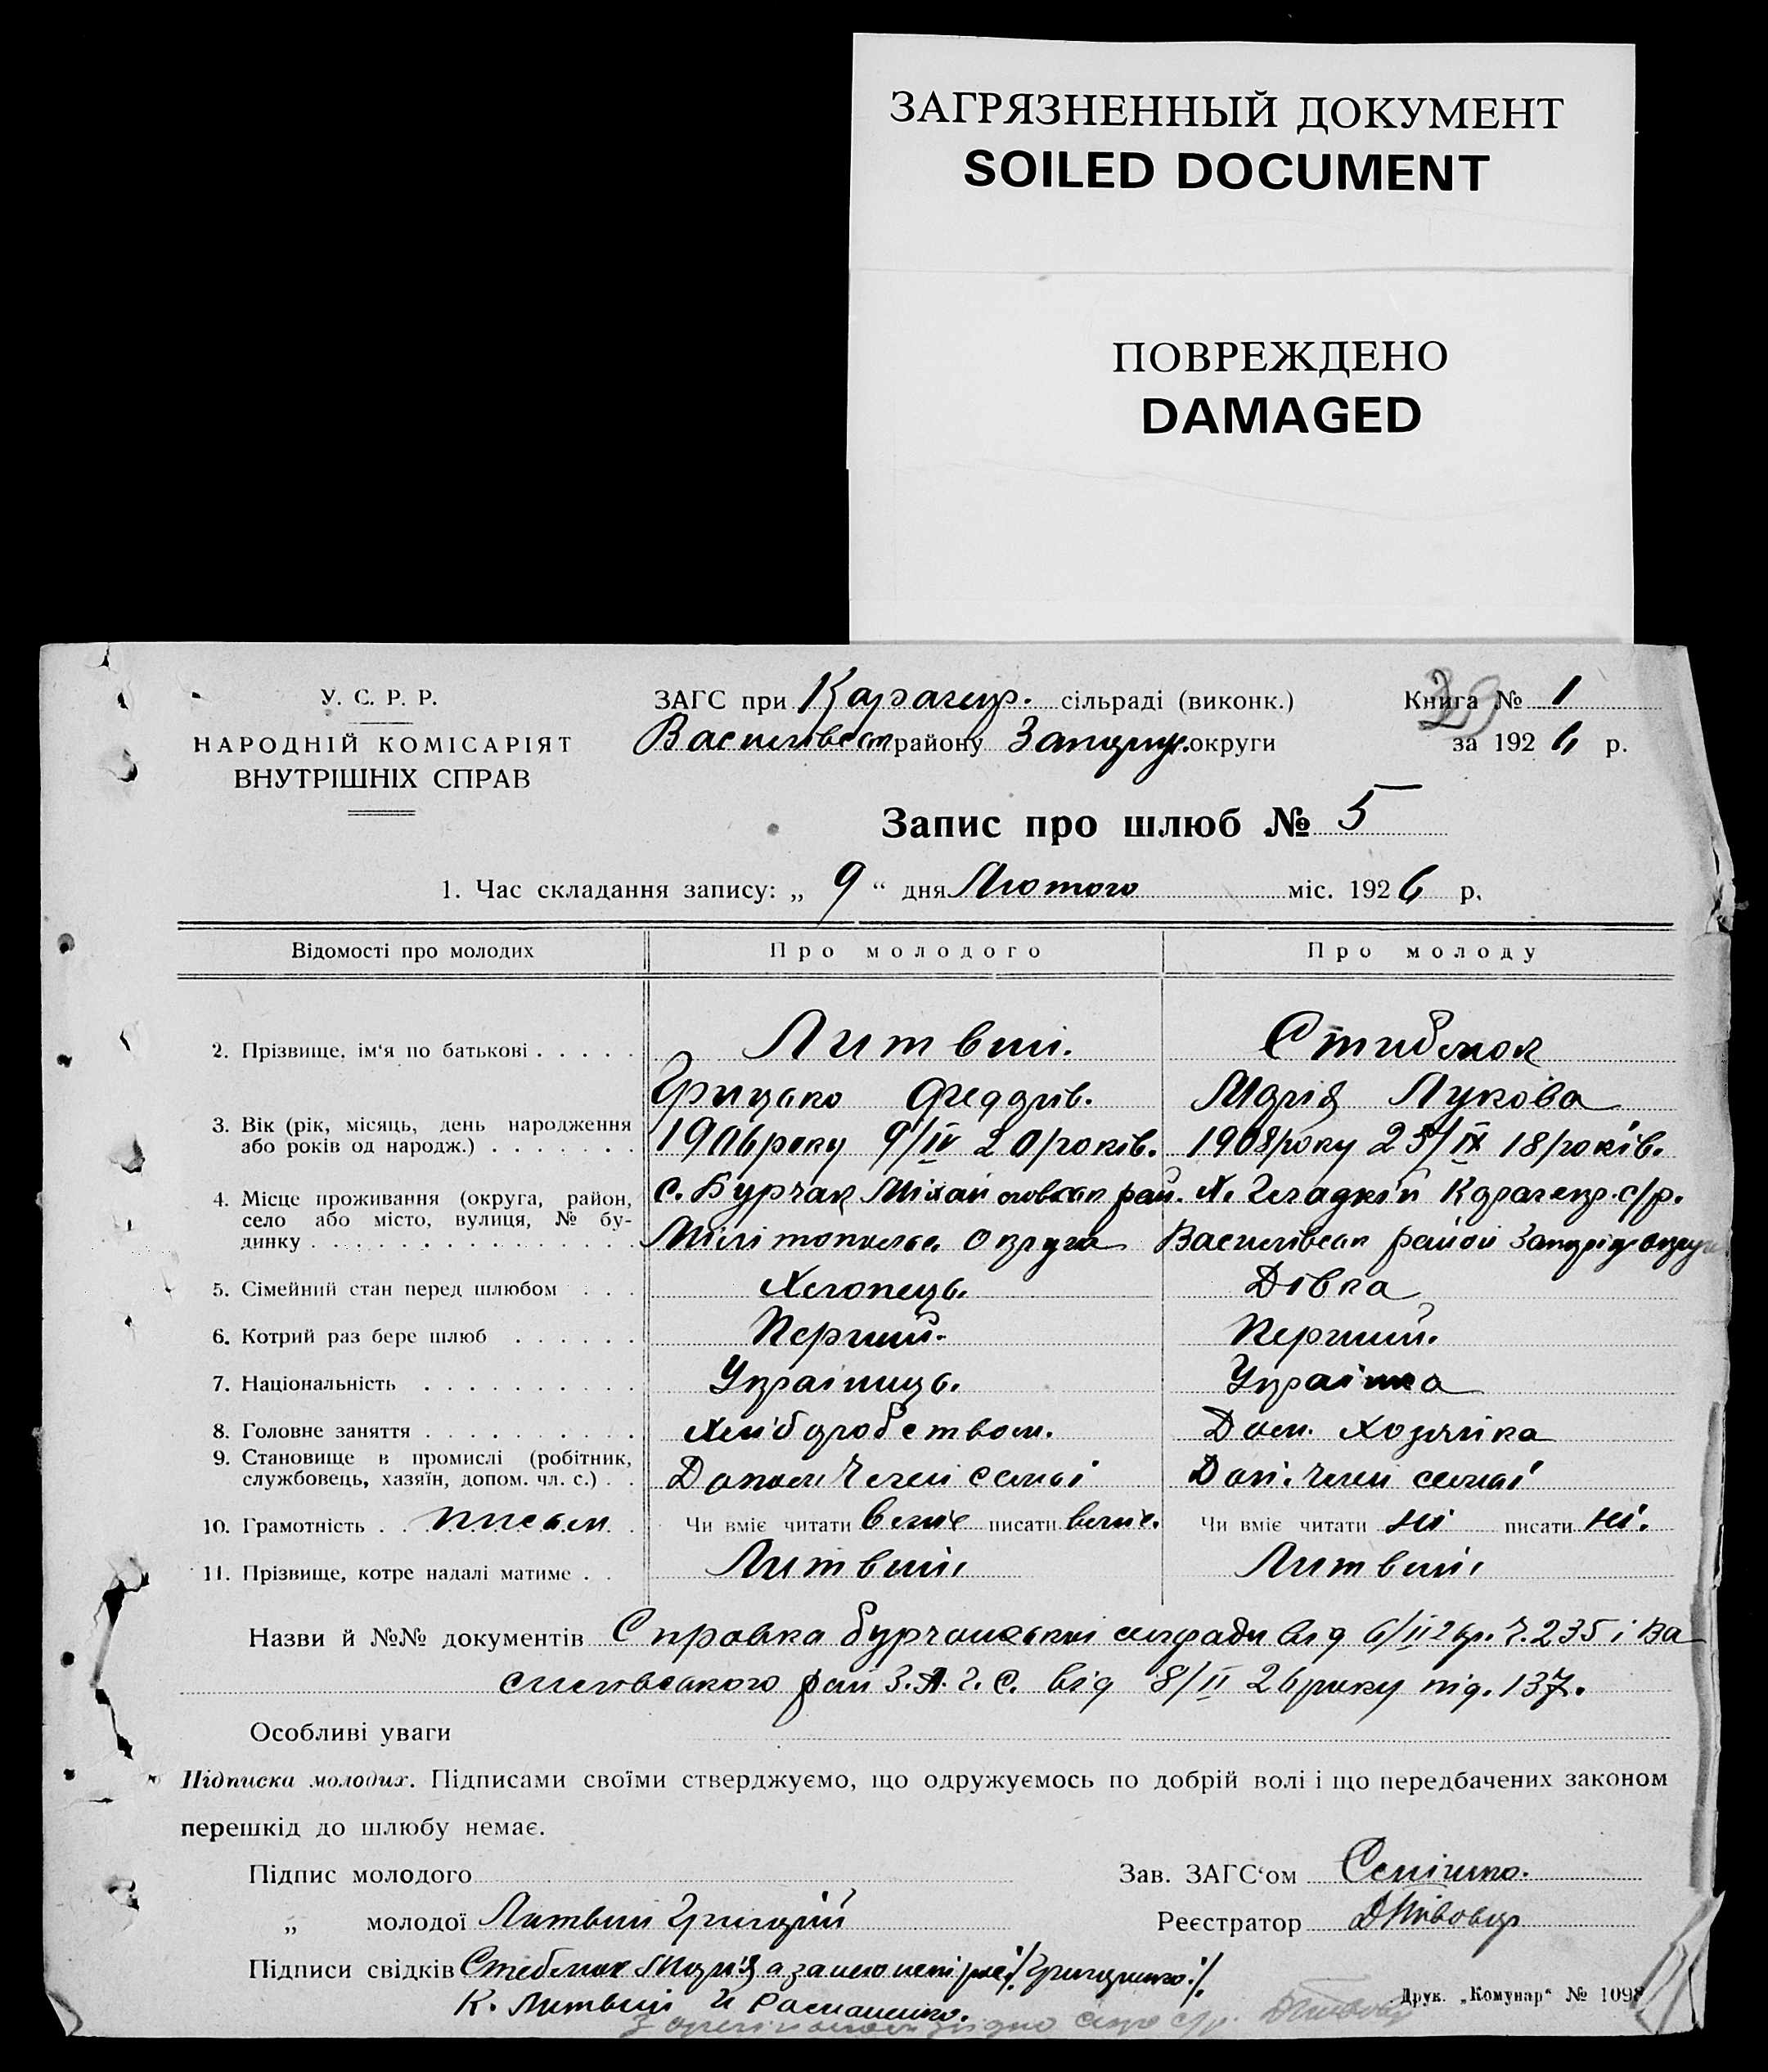 ЗАГРЯЗНЕННЫЙ ДОКУМЕНТ
SOILED DOCUMENT
ПОВРЕЖДЕНО
DAMAGED
У. С. Р. Р.
НАРОДНІЙ КОМІСАРІЯТ
ВНУТРІШНІХ СПРАВ
ЗАГС при Карачекр. сільраді (виконк.)
Василівськ району Запоріж. округи
Книга № 1
за 1926 р.
Запис про шлюб № 5
1. Час складання запису: „ 9 “ дня Лютого міс. 1926 р.
Відомості про молодих Про молодого Про молоду
2. Прізвище, ім‘я по батькові . . . . . Литвин. Стиблюк
Грицько Федорів. Марія Лукова
3. Вік (рік, місяць, день народження
або років од народж.) . . . . . . . 1906 року 9/IV 20 років. 1908 року 25/IX 18 років.
4. Місце проживання (округа, район,
село або місто, вулиця, № бу-
динку . . . . . . . . . . . . . . .
с. Бурчак Міхайловськ рай. Х. Гладкій Карачекр. с/р.
Мілітопольс. Округа Василівськ район Запоріж округи
5. Сімейний стан перед шлюбом . . . Хлопець. Дівка
6. Котрий раз бере шлюб . . . . . . Перший. Перший.
7. Національність . . . . . . . . . . Українць. Українка
8. Головне заняття . . . . . . . . . . Хліборобством. Дом. Хозяйка
9. Становище в промислі (робітник,
службовець, хазяїн, допом. чл. с.) . . Допом Член семьі Доп. член семьі
10. Грамотність . . письм . Чи вміє читати вміє писати вміє. Чи вміє читати ні писати ні.
11. Прізвище, котре надалі матиме . . Литвин Литвин
Назви й №№ документів Справка бурчанської сільради від 6/II 26 р. Ч. 235 і Ва
силівського рай З.А.Г.С. від 8/II 26 року під. 137.
Особливі уваги
Підписка молодих. Підписами своїми стверджуємо, що одружуємось по добрій волі і що передбачених законом
перешкід до шлюбу немає.
Підпис молодого Зав. ЗАГС‘ом
„ молодої Литвин Григорій Реєстратор
Підписи свідків Стеблюк Марія а за нею
К. Литвин И Романенко.
Друк. „Комунар“ № 1098